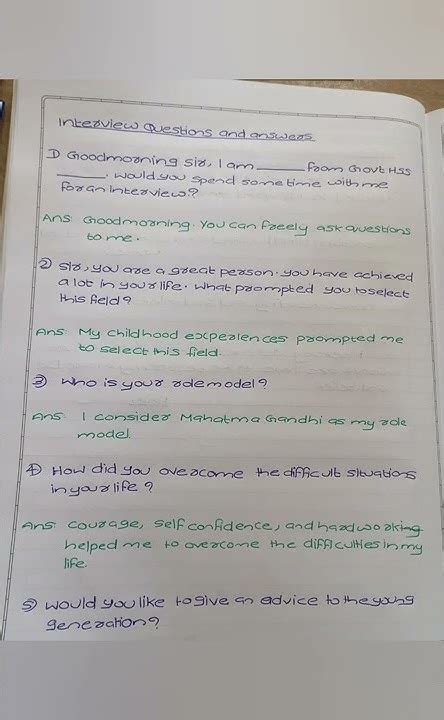 Interview Questions and answers
1) Goodmorning sir, I am ______ from Govt HSS
______. Would you spend some time with me
for an interview?
Ans: Goodmorning. You can freely ask questions
to me.
2) Sir, you are a great person. You have achieved
a lot in your life. What prompted you to select
this field?
Ans: My childhood experiences prompted me
to select this field.
3) Who is your role model?
Ans: I consider Mahatma Gandhi as my role
model.
4) How did you overcome the difficult situations
in your life?
Ans: Courage, self confidence, and hardworking
helped me to overcome the difficulties in my
life.
5) Would you like to give an advice to the young
generation?